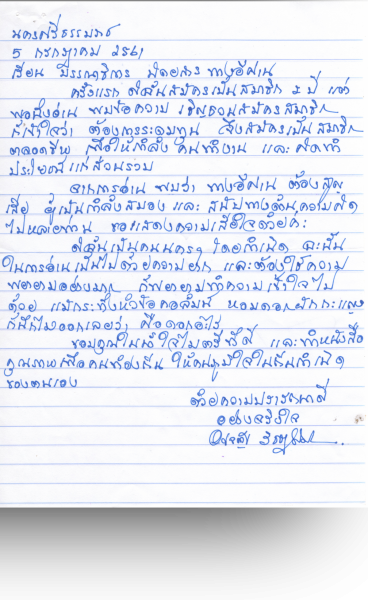 นครศรีธรรมราช
5 กรกฎาคม 2561
เรียน บรรณาธิการ นิตยสาร ทางอีศาน
ครั้งแรก ดิฉันสมัครเป็นสมาชิก 2 ปี แต่
พอถึงอ่าน พบข้อความ เชิญชวนสมัครสมาชิก
ก็เข้าใจว่า ต้องการระดมทุน จึงสมัครเป็นสมาชิก
ตลอดชีพ เพื่อให้กำลังคนทำงาน และ คิดทำ
ประโยชน์แก่ส่วนรวม
จากการอ่าน พบว่า ทางอีศาน ต้องสูญ
เสีย ผู้เป็นกำลังสมอง และ สนับทางด้านความคิด
ไปหลายท่าน ขอแสดงความเสียใจด้วยค่ะ
ดิฉันเป็นคนนครฯ โดยกำเนิด ฉะนั้น
ในการอ่านเป็นไปด้วยความยาก และต้องใช้ความ
พยายามอย่างมาก ก็พยายามทำความเข้าใจไป
ด้วย แม้กระทั่งหัวข้อคอลัมน์ หอมดอกผักกะแยง
ก็นึกไม่ออกเลยว่า คือดอกอะไร
ขอบคุณในน้ำใจไมตรีที่ดี และทำหนังสือ
คุณภาพเพื่อคนท้องถิ่น ให้คนภูมิใจในถิ่นกำเนิด
ของตนเอง
ด้วยความปรารถนาดี
อย่างจริงใจ